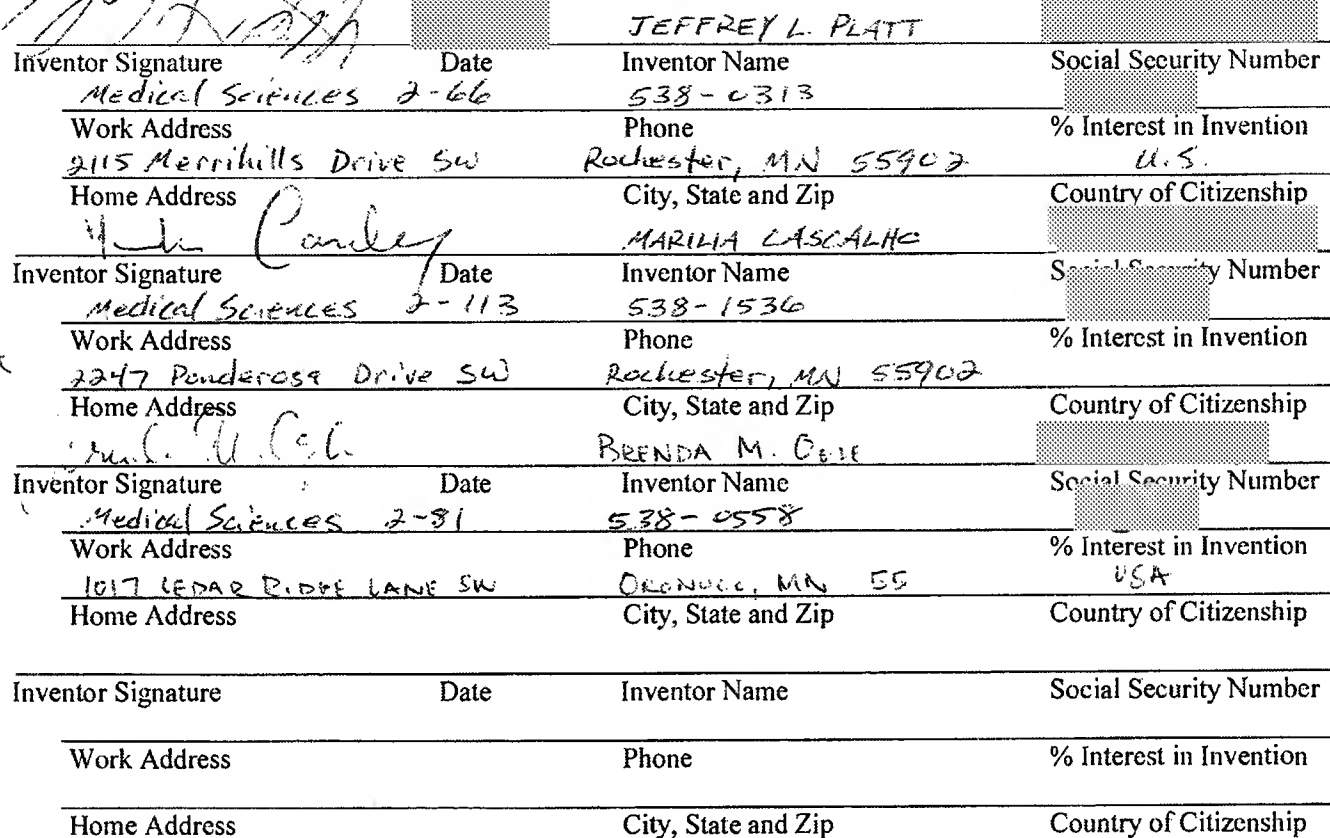 JEFFREY L. PLATT
Inventor Signature Date Inventor Name Social Security Number
Medical Sciences 2-66 538-0313
Work Address Phone % Interest in Invention
2115 Merrihills Drive SW Rochester, MN 55902 U.S.
Home Address City, State and Zip Country of Citizenship
MARILIA CASCALHO
Inventor Signature Date Inventor Name Number
Medical Sciences 2-113 538-1536
Work Address Phone % Interest in Invention
2247 Ponderosa Drive SW Rochester, MN 55902
Home Address City, State and Zip Country of Citizenship
BRENDA M. OGLE
Inventor Signature Date Inventor Name Social Security Number
Medical Sciences 2-81 538-0558
Work Address Phone % Interest in Invention
1017 CEDAR RIDGE LANE SW ORONOCO, MN 55 USA
Home Address City, State and Zip Country of Citizenship
Inventor Signature Date Inventor Name Social Security Number
Work Address Phone % Interest in Invention
Home Address City, State and Zip Country of Citizenship